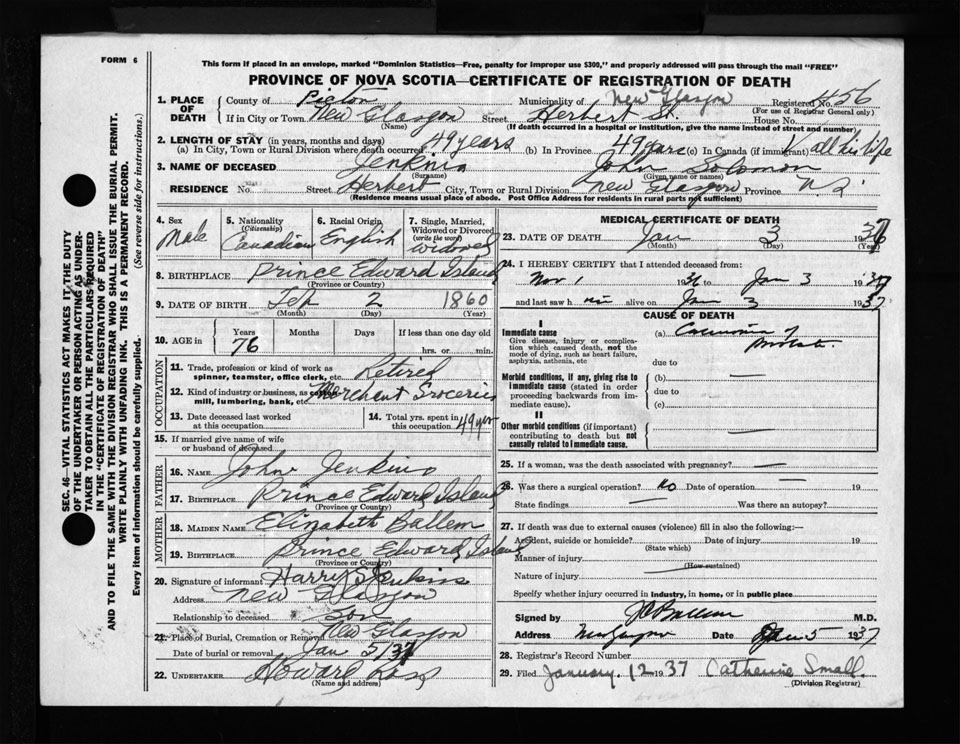 FORM 6
This form if placed in an envelope, marked "Dominion Statistics—Free, penalty for improper use $300," and properly addressed will pass through the mail "FREE"
PROVINCE OF NOVA SCOTIA—CERTIFICATE OF REGISTRATION OF DEATH
1. PLACE OF DEATH County of Pictou Municipality of New Glasgow Registered No. 456
(For use of Registrar General only)
If in City or Town New Glasgow Street Herbert St. House No.
(Name) (If death occurred in a hospital or institution, give the name instead of street and number)
2. LENGTH OF STAY (in years, months and days)
(a) In City, Town or Rural Division where death occurred 49 years (b) In Province 49 years (c) In Canada (if immigrant) all his life
3. NAME OF DECEASED Jenkins John Solomon
(Surname) (Given name or names)
RESIDENCE No. Street Herbert City, Town or Rural Division New Glasgow Province N S
(Residence means usual place of abode. Post Office Address for residents in rural parts not sufficient)
4. Sex Male
5. Nationality (Citizenship) Canadian
6. Racial Origin English
7. Single, Married, Widowed or Divorced (write the word) Widowed
8. BIRTHPLACE Prince Edward Island
(Province or Country)
9. DATE OF BIRTH Feb 2 1860
(Month) (Day) (Year)
10. AGE in Years 76 Months Days If less than one day old
hrs. or min.
OCCUPATION
11. Trade, profession or kind of work as spinner, teamster, office clerk, etc. Retired
12. Kind of industry or business, as cotton mill, lumbering, bank, etc. Merchant Groceries
13. Date deceased last worked at this occupation
14. Total yrs. spent in this occupation 49 yrs
15. If married give name of wife or husband of deceased
FATHER
16. NAME John Jenkins
17. BIRTHPLACE Prince Edward Island
(Province or Country)
MOTHER
18. MAIDEN NAME Elizabeth Ballem
19. BIRTHPLACE Prince Edward Island
(Province or Country)
20. Signature of informant Harry Jenkins
Address New Glasgow
Relationship to deceased Son
21. Place of Burial, Cremation or Removal New Glasgow
Date of burial or removal Jan 5/37
22. UNDERTAKER Howard Ross
(Name and address)
MEDICAL CERTIFICATE OF DEATH
23. DATE OF DEATH Jan 3 1937
(Month) (Day)
24. I HEREBY CERTIFY that I attended deceased from:
Nov 1 1936 to Jan 3 1937
and last saw him alive on Jan 3 1937
CAUSE OF DEATH
I
Immediate cause (a) Carcinoma of
Give disease, injury or complication which caused death, not the mode of dying, such as heart failure, asphyxia, asthenia, etc
due to
Morbid conditions, if any, giving rise to immediate cause (stated in order proceeding backwards from immediate cause). (b) —
due to
(c)
II
Other morbid conditions (if important) contributing to death but not causally related to immediate cause. —
25. If a woman, was the death associated with pregnancy? —
26. Was there a surgical operation? No Date of operation — 19
State findings Was there an autopsy?
27. If death was due to external causes (violence) fill in also the following:—
Accident, suicide or homicide? Date of injury 19
(State which)
Manner of injury
(How sustained)
Nature of injury
Specify whether injury occurred in Industry, in home, or in public place
Signed by M.D.
Address New Glasgow Date Jan 5 1937
28. Registrar's Record Number
29. Filed January 12 1937 Catherine Small
(Division Registrar)
SEC. 46—VITAL STATISTICS ACT MAKES IT THE DUTY
OF THE UNDERTAKER OR PERSON ACTING AS UNDERTAKER TO OBTAIN ALL THE PARTICULARS REQUIRED
IN THE "CERTIFICATE OF REGISTRATION OF DEATH"
AND TO FILE THE SAME WITH THE DIVISION REGISTRAR WHO SHALL ISSUE THE BURIAL PERMIT.
WRITE PLAINLY WITH UNFADING INK. THIS IS A PERMANENT RECORD.
Every item of information should be carefully supplied. (See reverse side for instructions.)